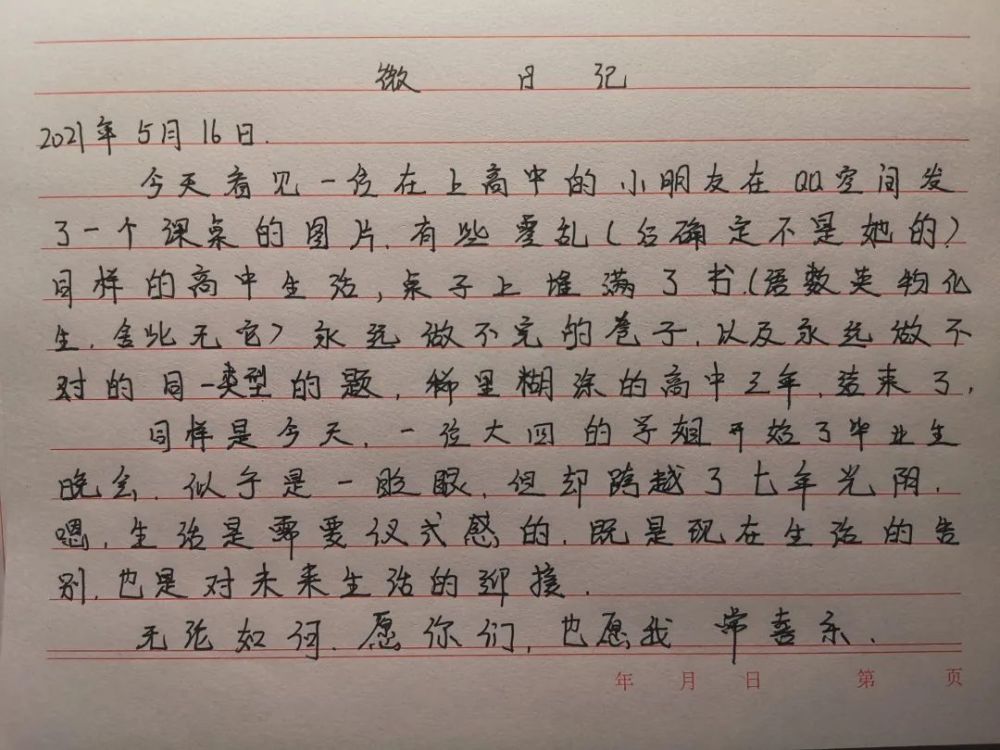 微 日 记
2021年 5月 16日.
今天看见一位在上高中的小朋友在QQ空间发
了一个课桌的图片,有些零乱(后确定不是她的)
同样的高中生活,桌子上堆满了书.(语数英物化
生,舍此无它)永远做不完的卷子,以及永远做不
对的同一类型的题,稀里糊涂的高中三年,结束了,
同样是今天,一位大四的学姐开始了毕业生
晚会,似乎是一眨眼,但却跨越了七年光阴,
嗯,生活是需要仪式感的,既是现在生活的告
别,也是对未来生活的迎接.
无论如何,愿你们,也愿我 常喜乐.
年 月 日 第 页